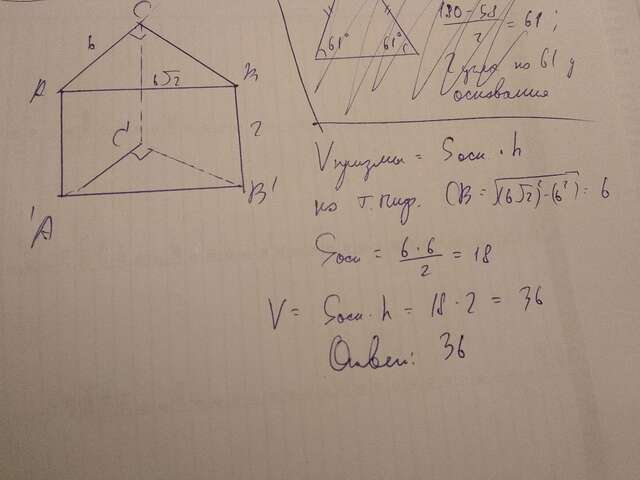 C
6
6√2
A
B
2
C'
A'
B'
61°
61°
(180-58)/2 = 61;
2 угла по 61 у
основания
Vпризмы = Sосн · h
по т. пиф. CB = √((6√2)² - (6²)) = 6
Sосн = (6·6)/2 = 18
V = Sосн · h = 18 · 2 = 36
Ответ: 36